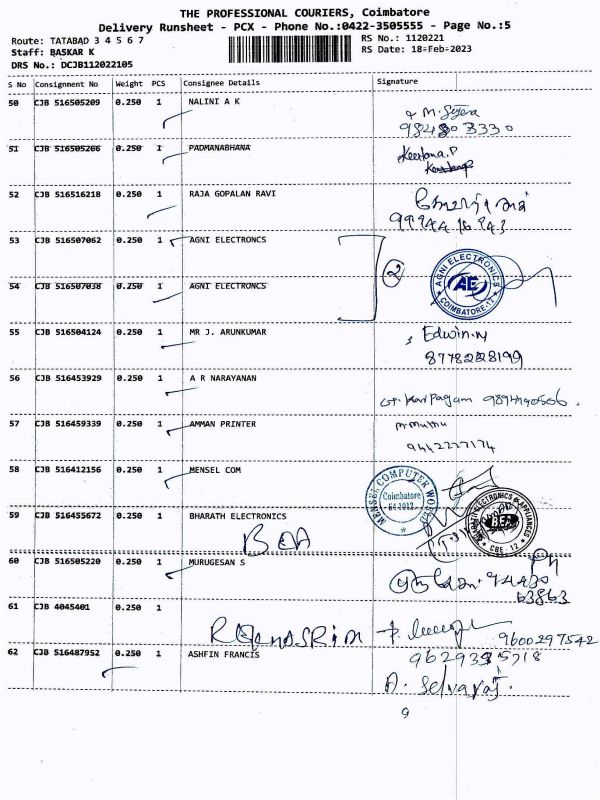 THE PROFESSIONAL COURIERS, Coimbatore
Delivery Runsheet - PCX - Phone No.:0422-3505555 - Page No.:5
Route: TATABAD 3 4 5 6 7 RS No.: 1120221
Staff: BASKAR K RS Date: 18-Feb-2023
DRS No.: DCJB112022105
S No Consignment No Weight PCS Consignee Details Signature
50 CJB 516505209 0.250 1 NALINI A K
51 CJB 516505206 0.250 1 PADMANABHANA Keerthana.P
52 CJB 516516218 0.250 1 RAJA GOPALAN RAVI
53 CJB 516507062 0.250 1 AGNI ELECTRONCS
2
AGNI ELECTRONICS
AE
COIMBATORE-12
54 CJB 516507038 0.250 1 AGNI ELECTRONCS
55 CJB 516504124 0.250 1 MR J. ARUNKUMAR Edwin.N
8778228199
56 CJB 516453929 0.250 1 A R NARAYANAN
57 CJB 516459339 0.250 1 AMMAN PRINTER
9442227174
58 CJB 516412156 0.250 1 MENSEL COM
MENSEL COMPUTER WORLD
Coimbatore
641012
59 CJB 516455672 0.250 1 BHARATH ELECTRONICS
BEA
BHARATH ELECTRONICS & APPLIANCES
BEA
CBE - 12
60 CJB 516505220 0.250 1 MURUGESAN S
94430
63863
61 CJB 4045401 0.250 1
9600297542
62 CJB 516487952 0.250 1 ASHFIN FRANCIS
A. Selvaraj.
9